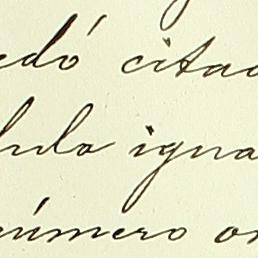 edó citad
dula igua
número on